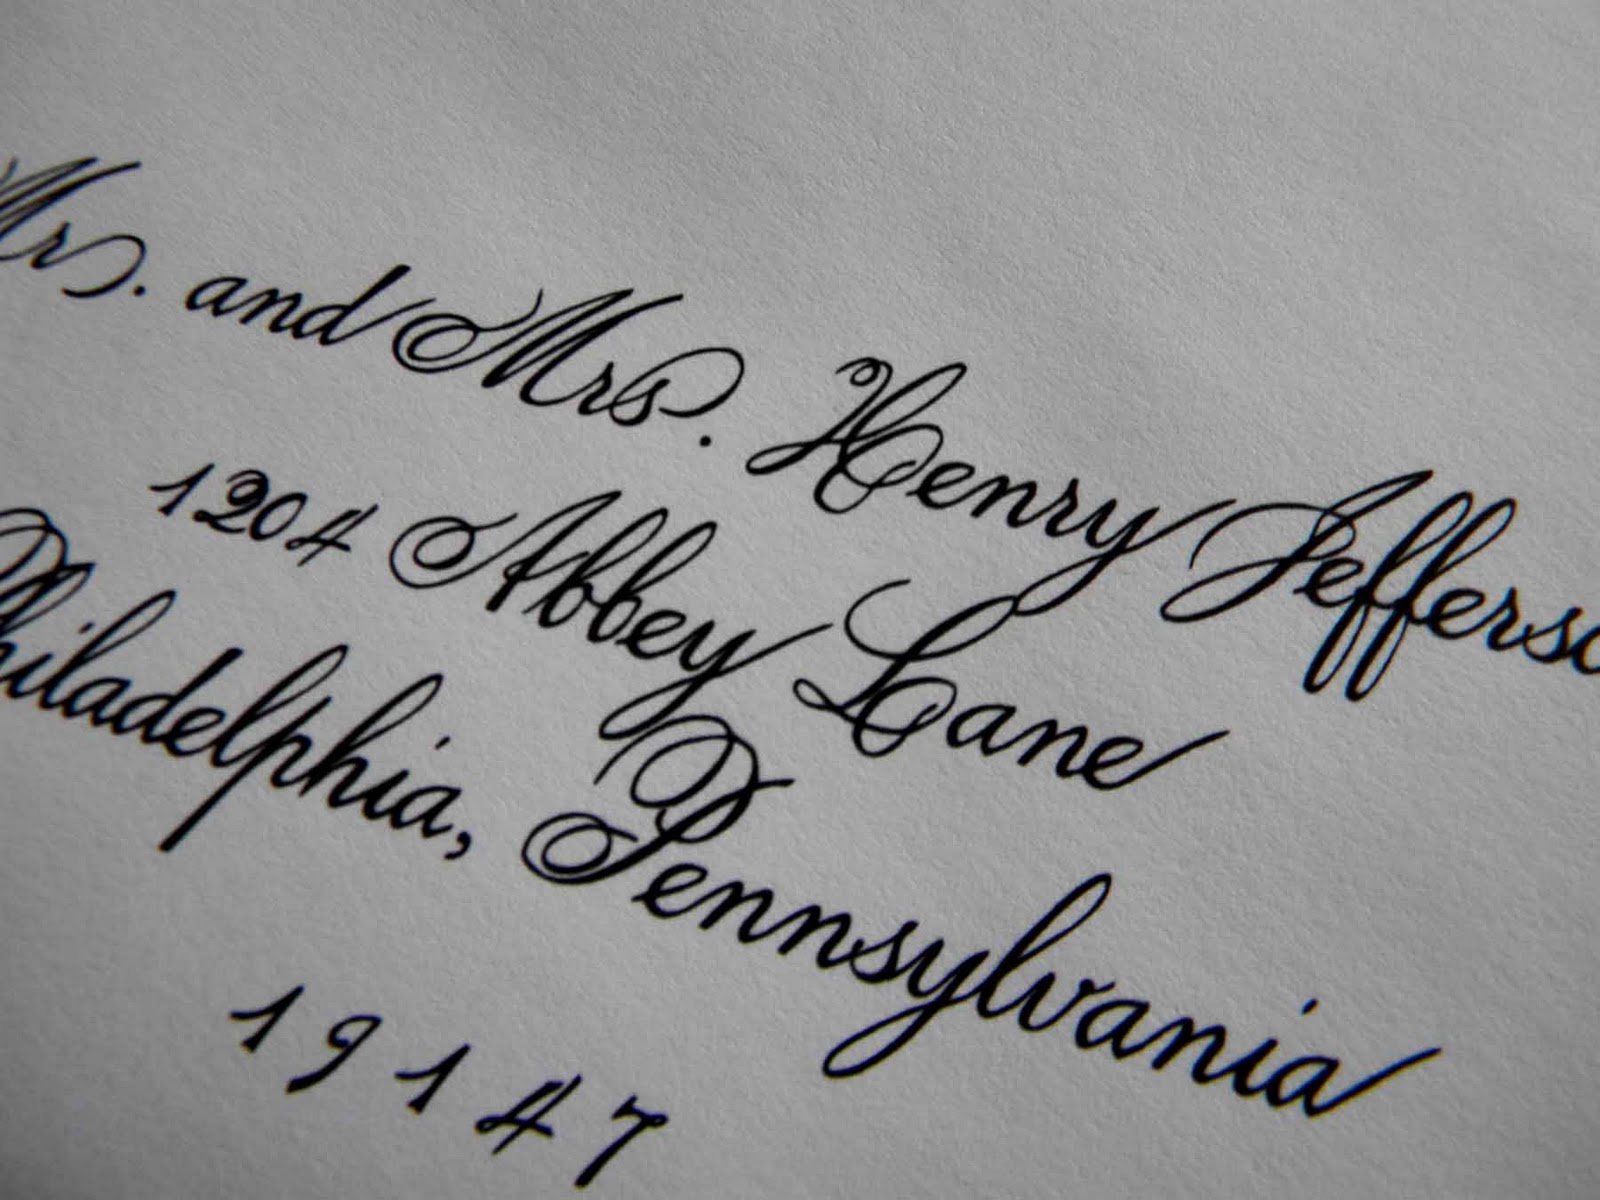 Mr. and Mrs. Henry Jefferso
1204 Abbey Lane
Philadelphia, Pennsylvania
19147